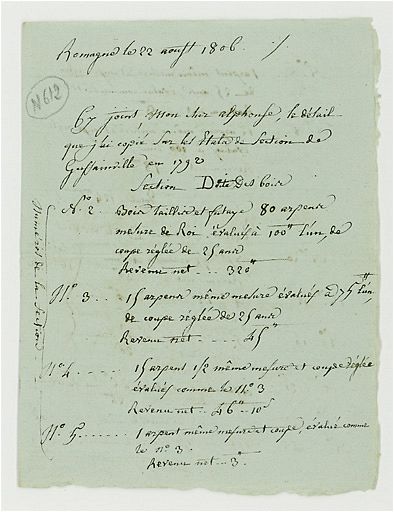 Romagne le 22 aoust 1806. /.
N 612
Cy joint, mon cher alphonse le détail
que j'ai copié sur les Etats de Section de
Gussainville en 1792
Section D dite des bois
Numéros de la Section
N.º 2. Bois taillis et futaye 80 arpens
mesure de Roi évalués à 100ᵗᵗ l'un, de
coupe réglée de 25 ans
Revenu net ... 320ᵗᵗ
N.º 3 ... 15 arpens même mesure évalués à 75ᵗᵗ l'un
de coupe réglée de 25 ans
Revenu net ...... 45ᵗᵗ
N.º 4 ...... 15 arpent 1/2 même mesure et coupe réglée
évalués comme le N.º 3
Revenu net .. 46ᵗᵗ .. 10ˢ
N.º 5 ...... 1 arpent même mesure et coupe, évalué comme
le n.º 3.
Revenu net ... 3ᵗᵗ